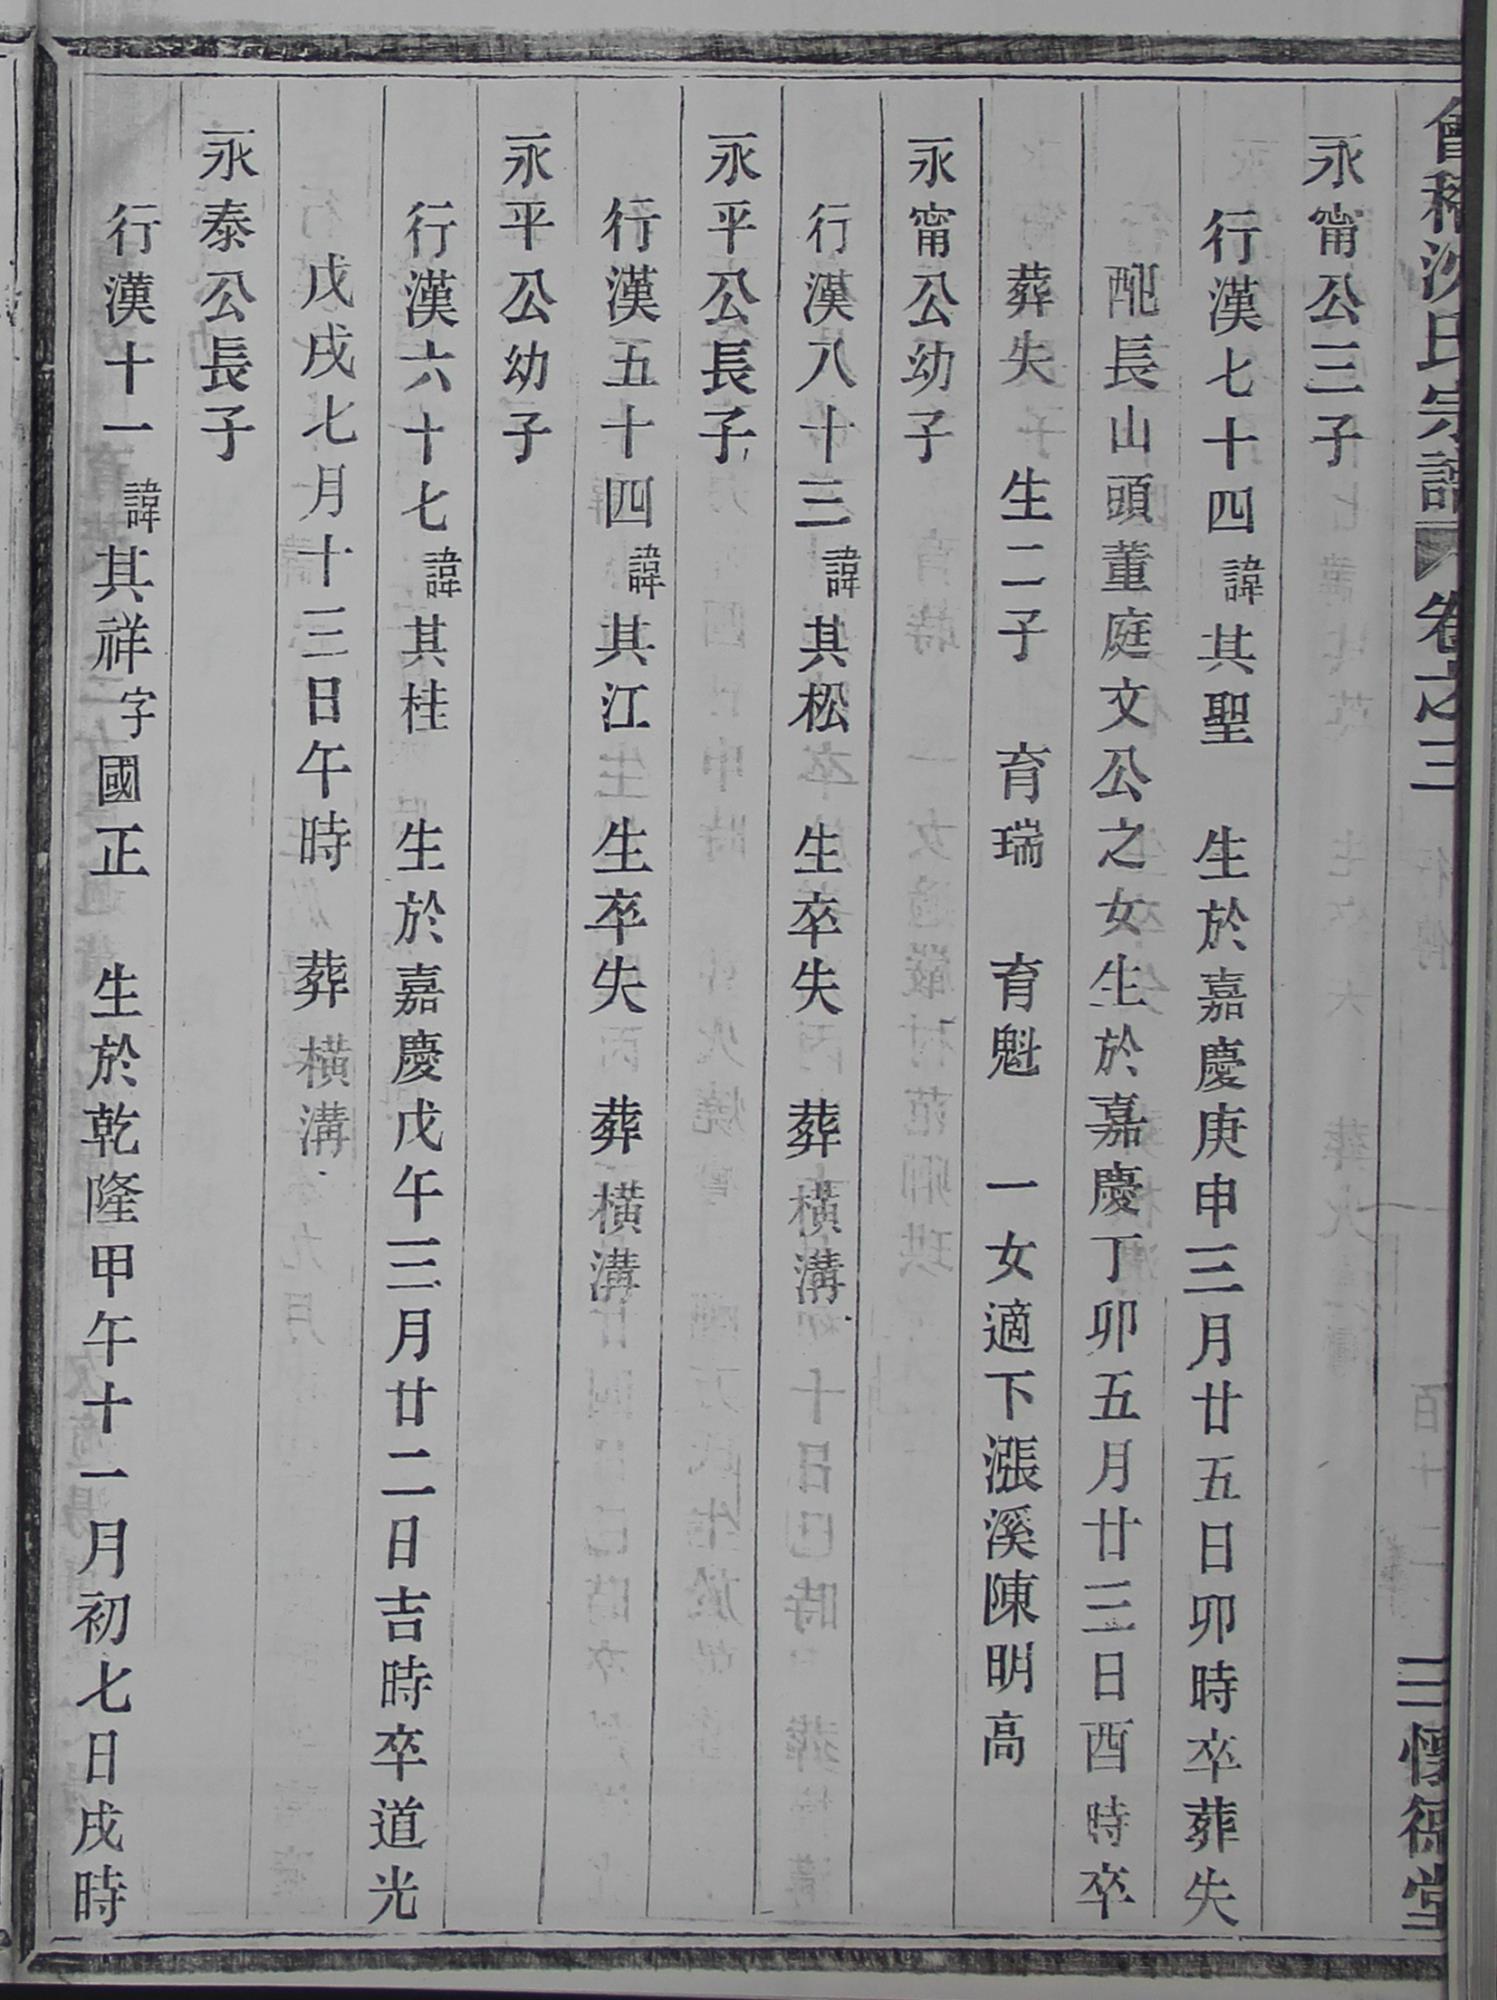 會稽沈氏宗譜 卷之三 懷德堂
永甯公三子
行漢七十四諱其聖 生於嘉慶庚申三月廿五日卯時卒葬失
配長山頭董庭文公之女生於嘉慶丁卯五月廿三日酉時卒
葬失 生二子 育瑞 育魁 一女適下漲溪陳明高
永甯公幼子
行漢八十三諱其松 生卒失 葬橫溝
永平公長子
行漢五十四諱其江 生卒失 葬橫溝
永平公幼子
行漢六十七諱其桂 生於嘉慶戊午三月廿二日吉時卒道光
戊戌七月十三日午時 葬橫溝
永泰公長子
行漢十一諱其祥字國正 生於乾隆甲午十一月初七日戌時